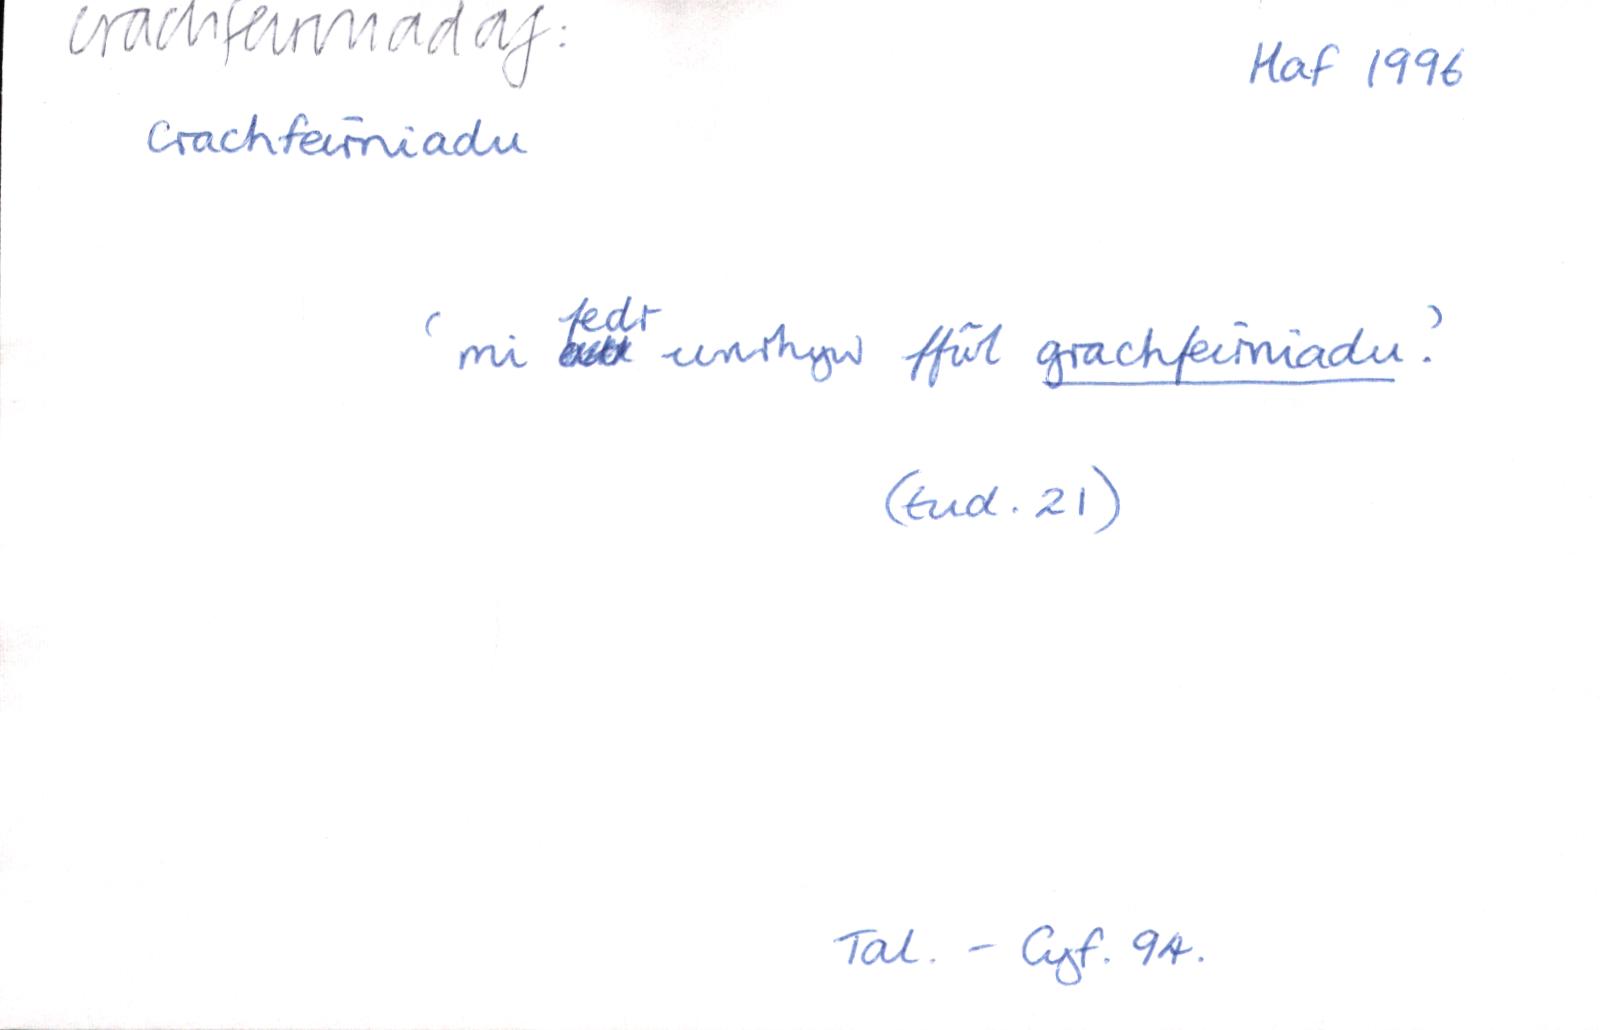 crachfeirniadaf:
Haf 1996
Crachfeirniadu
‘mi fedr unrhyw ffŵl grachfeirniadu.’
(tud. 21)
Tal. - Cyf. 94.